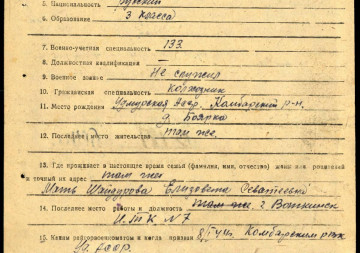 5. Национальность Русский
6. Образование 3 класса
7. Военно-учетная специальность 133
8. Должностная квалификация
9. Военное звание Не служил
10. Гражданская специальность Колхозник
11. Место рождения Удмурская АССР, Камбарский р-н.
д. Боярка
12. Последнее место жительства там же.
13. Где проживает в настоящее время семья (фамилия, имя, отчество) жены или родителей
и точный их адрес там же
Мать Шайдурова Елизавета
14. Последнее место работы и должность там же. г Воткинск
И.Т.К №7
15. Каким райгорвоенкоматом и когда призван Камбарским рвк
Уд. АССР.